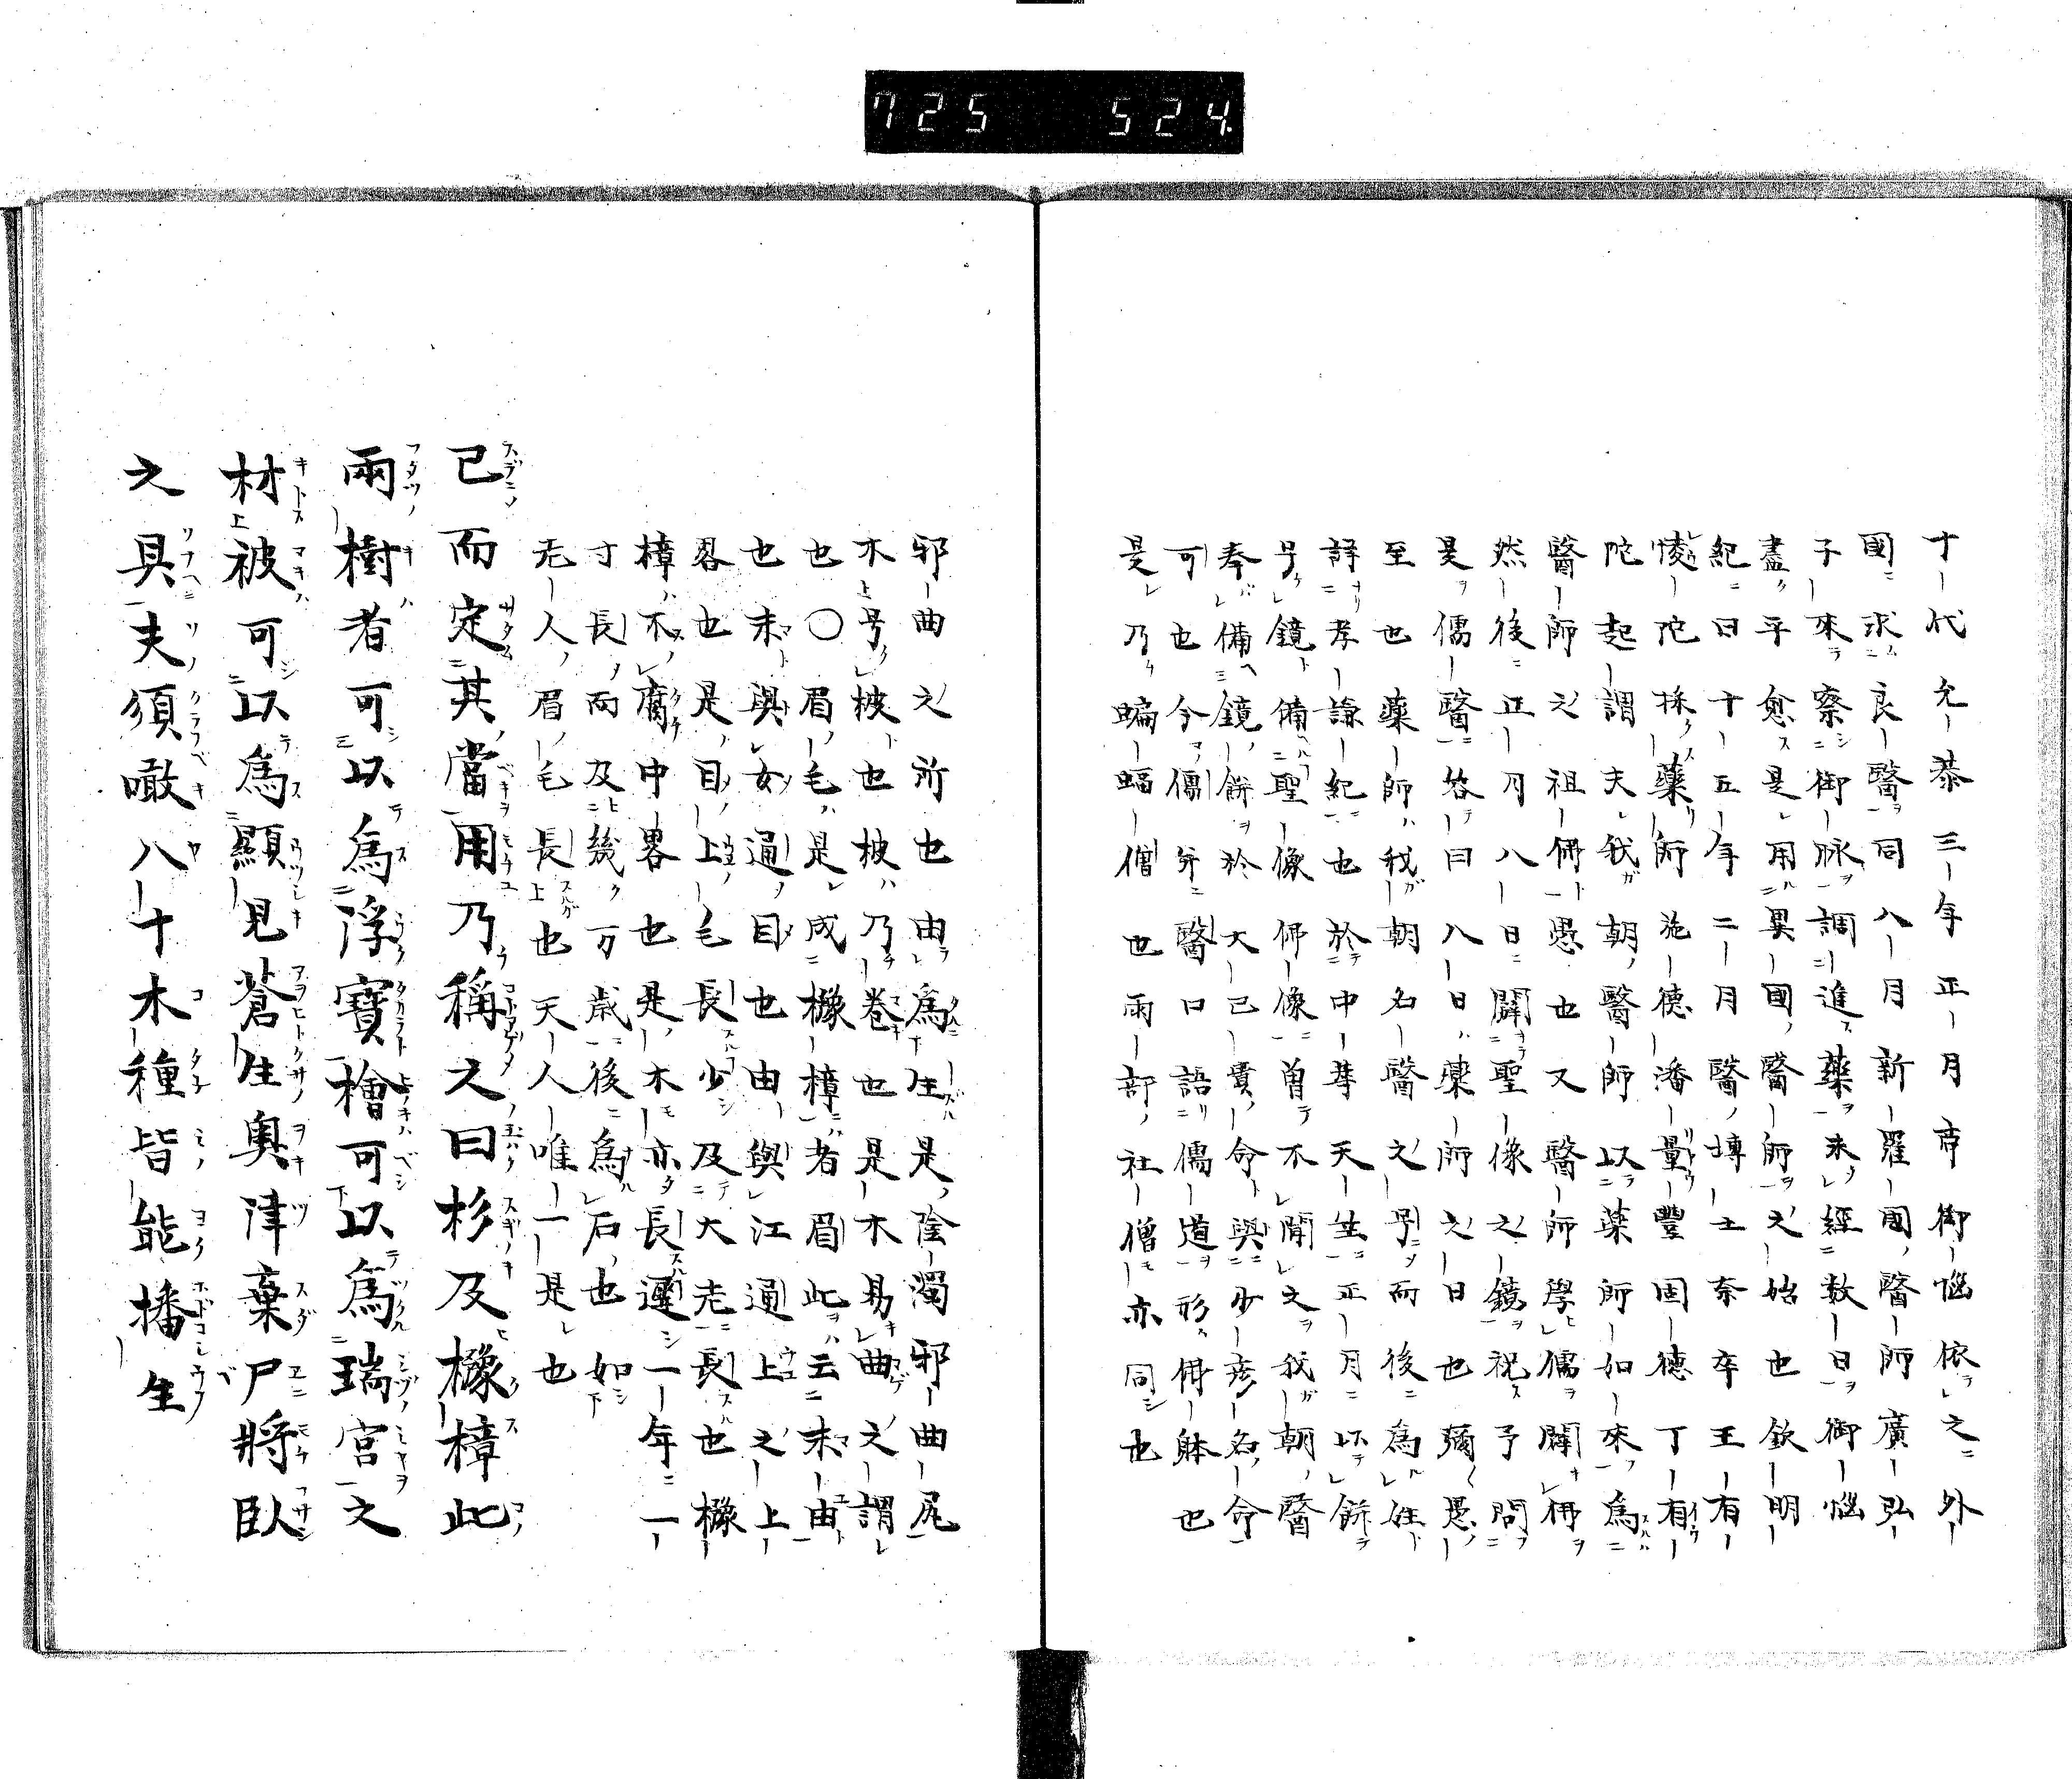 725 524
十代允恭三年正月帝御惱依之外
國求良醫同八月新羅國醫師廣弘
子來察御脉調進藥未經數日御惱
盡平愈是用異國醫師之始也欽明
紀曰十五年二月醫博士奈卒王有
㥄陀採藥師施德潘量豐固德丁有
陀起謂夫我朝醫師以藥師如來為
醫師之祖佛愚也又醫師學儒閞佛
然後正月八日閞聖像之鏡祝予問
是儒醫答曰八日藥師之日也彌愚
至也藥師我朝名醫之号而後為姓
詳孝謙紀也於中華天生正月坏餅
号鏡備聖像佛像曽不聞之我朝醫
奉備鏡餅於大己貴命與少彦名命
可也今儒弁醫口語儒道形佛躰也
是乃蝙蝠僧也兩部社僧亦同也
邪曲之所也由為生是陰濁邪曲尻
木号柀也柀乃卷也是木易曲之謂
也〇眉毛是成櫲樟者眉此云末由
也末與女通目也由與江通上之上
畧也是目上毛長少及大老長也櫲
樟不腐中畧也是木亦長遲一年一
寸長而及幾万歳後為石也如
无人眉毛長也天人唯一是也
已而定其當用乃稱之曰杉及櫲樟此
兩樹者可以為浮寳檜可以為瑞宮之
材柀可以為顯見蒼生奥津棄尸將臥
之具夫須噉八十木種皆能播生